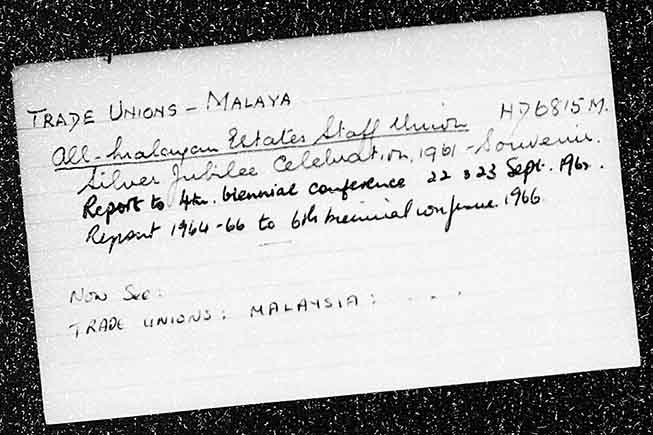 TRADE UNIONS - MALAYA
All-Malayan Estates Staff Union HD6815 M.
Silver Jubilee Celebration, 1961 - Souvenir.
Report to 4th. biennial conference 22 & 23 Sept. 1962.
Report 1964-66 to 6th biennial conference 1966
NOW SEE:
TRADE UNIONS: MALAYSIA: . . .